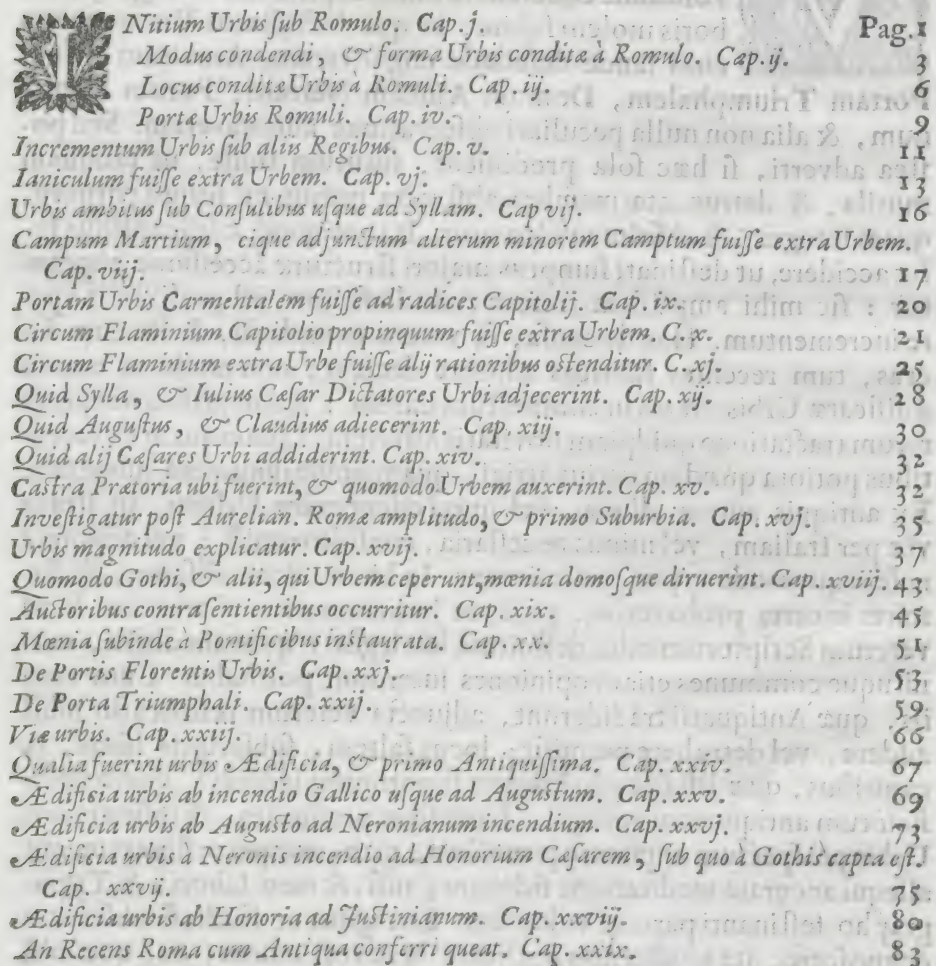 INitium Urbis ſub Romulo. Cap. j. Pag. 1
Modus condendi, & forma Urbis conditæ à Romulo. Cap. ij. 3
Locus conditæ Urbis à Romuli. Cap. iij. 6
Portæ Urbis Romuli. Cap. iv. 9
Incrementum Urbis ſub aliis Regibus. Cap. v. 11
Ianiculum fuiſſe extra Urbem. Cap. vj. 13
Urbis ambitus ſub Conſulibus uſque ad Syllam. Cap vij. 16
Campum Martium, eique adjunctum alterum minorem Camptum fuiſſe extra Urbem.
Cap. viij. 17
Portam Urbis Carmentalem fuiſſe ad radices Capitolij. Cap. ix. 20
Circum Flaminium Capitolio propinquum fuiſſe extra Urbem. C. x. 21
Circum Flaminium extra Urbe fuiſſe alij rationibus oſtenditur. C. xj. 25
Quid Sylla, & Iulius Cæſar Dictatores Urbi adjecerint. Cap. xij. 28
Quid Auguſtus, & Claudius adiecerint. Cap. xiij. 30
Quid alij Cæſares Urbi addiderint. Cap. xiv. 32
Caſtra Prætoria ubi fuerint, & quomodo Urbem auxerint. Cap. xv. 32
Inveſtigatur poſt Aurelian. Romæ amplitudo, & primo Suburbia. Cap. xvj. 35
Urbis magnitudo explicatur. Cap. xvij. 37
Quomodo Gothi, & alii, qui Urbem ceperunt, mœnia domoſque diruerint. Cap. xviij. 43
Auctoribus contra ſentientibus occurritur. Cap. xix. 45
Mœnia ſubinde à Pontificibus inſtaurata. Cap. xx. 51
De Portis Florentis Urbis. Cap. xxj. 53
De Porta Triumphali. Cap. xxij. 59
Viæ urbis. Cap. xxiij. 66
Qualia fuerint urbis Ædificia, & primo Antiquiſſima. Cap. xxiv. 67
Ædificia urbis ab incendio Gallico uſque ad Auguſtum. Cap. xxv. 69
Ædificia urbis ab Auguſto ad Neronianum incendium. Cap. xxvj. 73
Ædificia urbis à Neronis incendio ad Honorium Cæſarem, ſub quo à Gothis capta eſt.
Cap. xxvij. 75
Ædificia urbis ab Honoria ad Juſtinianum. Cap. xxviij. 80
An Recens Roma cum Antiqua conferri queat. Cap. xxix. 83